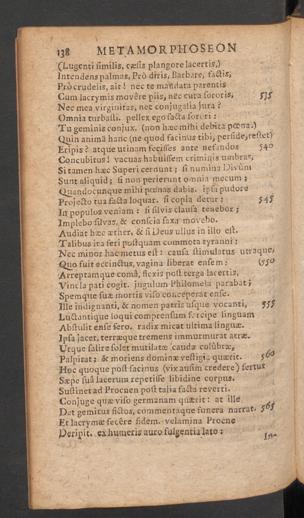 138 METAMORPHOSEON
(Lugenti similis, cæsis plangore lacertis,)
Intendens palmas, Prò diris, Barbare, factis,
Prò crudelis, ait! nec te mandata parentis
Cum lacrymis movêre piis, nec cura sororis, 535
Nec mea virginitas, nec conjugalia jura?
Omnia turbasti. pellex ego facta sorori:
Tu geminis conjux. (non hæc mihi debita pœna.)
Quin animã hanc (ne quod facinus tibi, perfide, restet)
Eripis? atque utinam fecisses ante nefandos 540
Concubitus! vacuas habuissem criminis umbras,
Si tamen hæc Superi cernunt; si numina Divûm
Sunt aliquid; si non perierunt omnia mecum;
Quandocunque mihi pœnas dabis. ipsa pudore
Projecto tua facta loquar. si copia detur; 545
In populos veniam: si silvis clausa tenebor;
Implebo silvas, & conscia saxa movebo.
Audiat hæc æther, & si Deus ullus in illo est.
Talibus ira feri postquam commota tyranni:
Nec minor hac metus est: causa stimulatus utraque, 550
Quo fuit accinctus, vagina liberat ensem;
Arreptamque comã, flexis post terga lacertis,
Vincla pati cogit. jugulum Philomela parabat;
Spemque suæ mortis viso conceperat ense.
Ille indignanti, & nomen patris usque vocanti, 555
Luctantique loqui comprensum forcipe linguam
Abstulit ense fero. radix micat ultima linguæ.
Ipsa jacet, terræque tremens immurmurat atræ.
Utque salire solet mutilatæ cauda colubræ,
Palpitat; & moriens dominæ vestigia quærit. 560
Hoc quoque post facinus (vix ausim credere) fertur
Sæpe suâ lacerum repetisse libidine corpus.
Sustinet ad Procnen post talia facta reverti.
Conjuge quæ viso germanam quærit: at ille
Dat gemitus fictos, commentaque funera narrat. 565
Et lacrymæ fecêre fidem. velamina Procne
Deripit ex humeris auro fulgentia lato:
In-